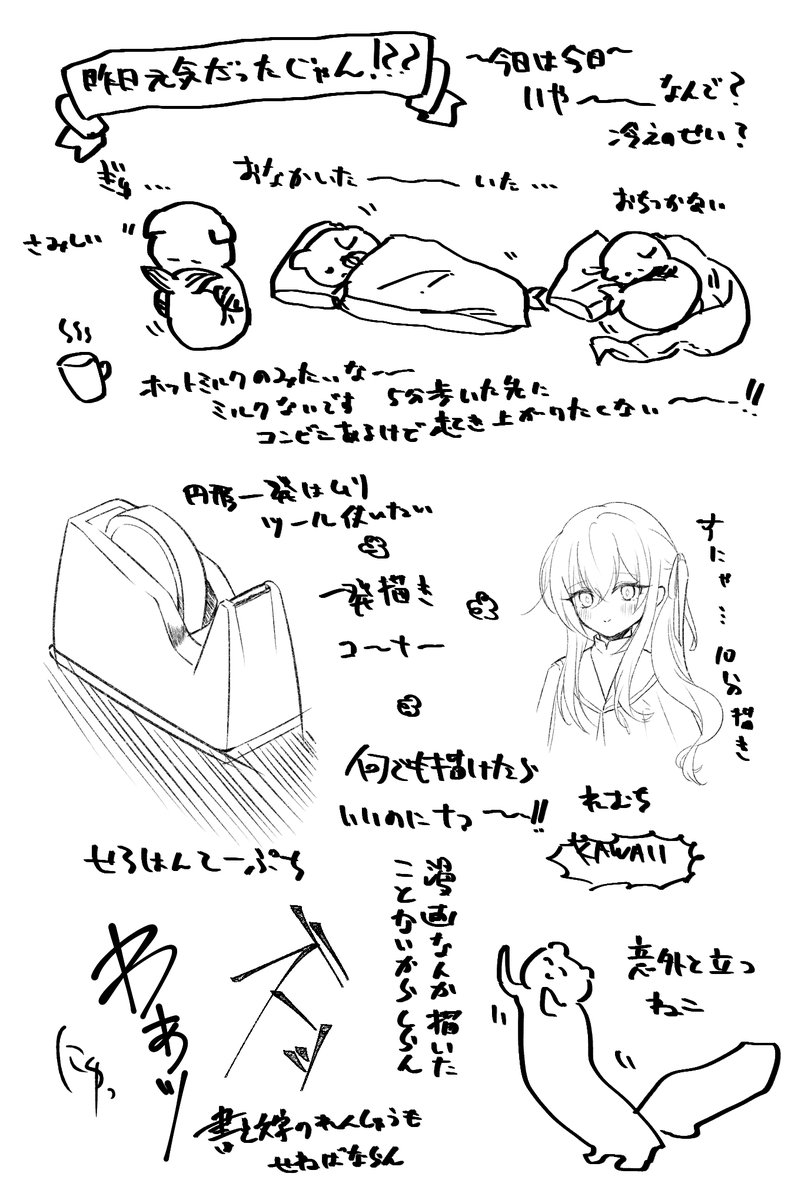 昨日元気だったじゃん!??
〜今日は今日〜
いや〜なんで?
冷えのせい?
ぎゅ…
おなかいた〜いた…
おちつかない
さみしい
ホットミルクのみたいなー
ミルクないです 5分歩いた先に
コンビニあるけど起き上がりたくない〜!!
円形一発はムリ
ツール使いたい
一発描き
コーナー
すにゃ…10分描き
何でも描けたら
いいのにナっ〜!!
れむち
KAWAII
せろはんてーぷち
漫画なんか描いた
ことないからしらん
わぁッ
にゅっ
書き文字のれんしゅうも
せねばならん
意外と立つ
ねこ